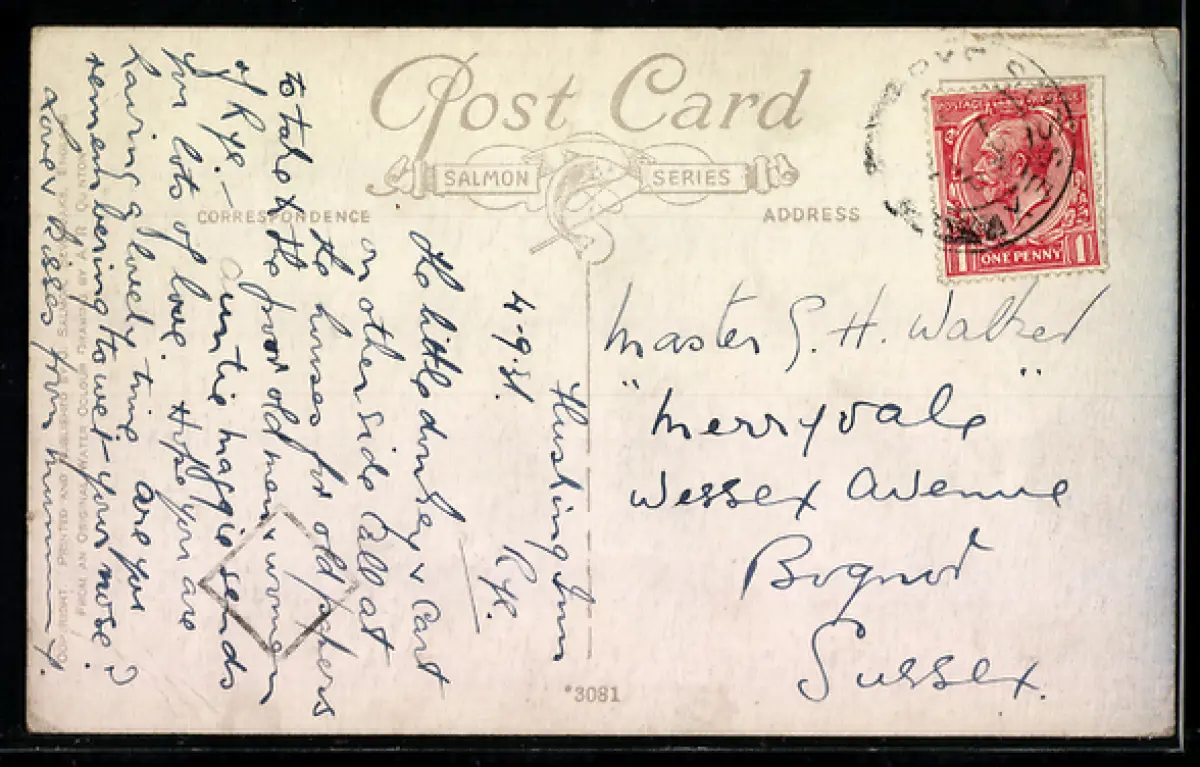 Post Card
SALMON SERIES
CORRESPONDENCE
ADDRESS
POSTAGE REVENUE
1 ONE PENNY 1
Flushing Inn
Rye.
4-9-31.
The little donkey & Cart
on other side Call at
the houses for old papers
to take to the poor old men & women
of Rye. —
Auntie Maggie sends
you lots of love. Hope you are
having a lovely time are you
remembering to wet your nose?
Love & kisses from mummy.
Master G. H. Walker
"Merryvale"
Wessex Avenue
Bognor
Sussex.
*3081
COPYRIGHT. PRINTED AND PUBLISHED BY J. SALMON, SEVENOAKS, ENG
FROM AN ORIGINAL WATER COLOUR DRAWING BY A. R. QUINTON